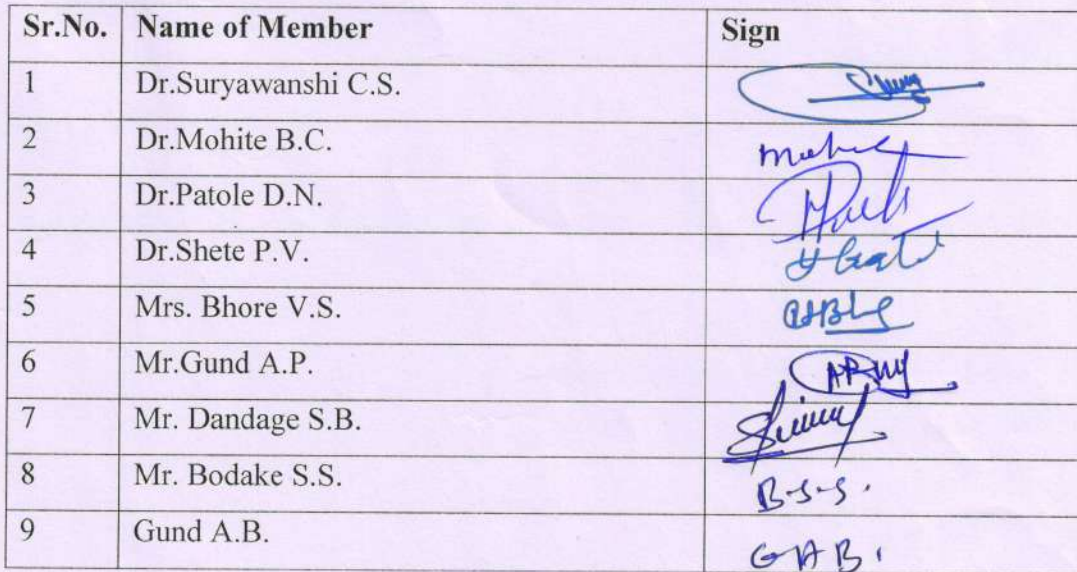 Sr.No. Name of Member Sign
1 Dr.Suryawanshi C.S.
2 Dr.Mohite B.C.
3 Dr.Patole D.N.
4 Dr.Shete P.V.
5 Mrs. Bhore V.S.
6 Mr.Gund A.P.
7 Mr. Dandage S.B.
8 Mr. Bodake S.S. B.S.S.
9 Gund A.B. G A B.